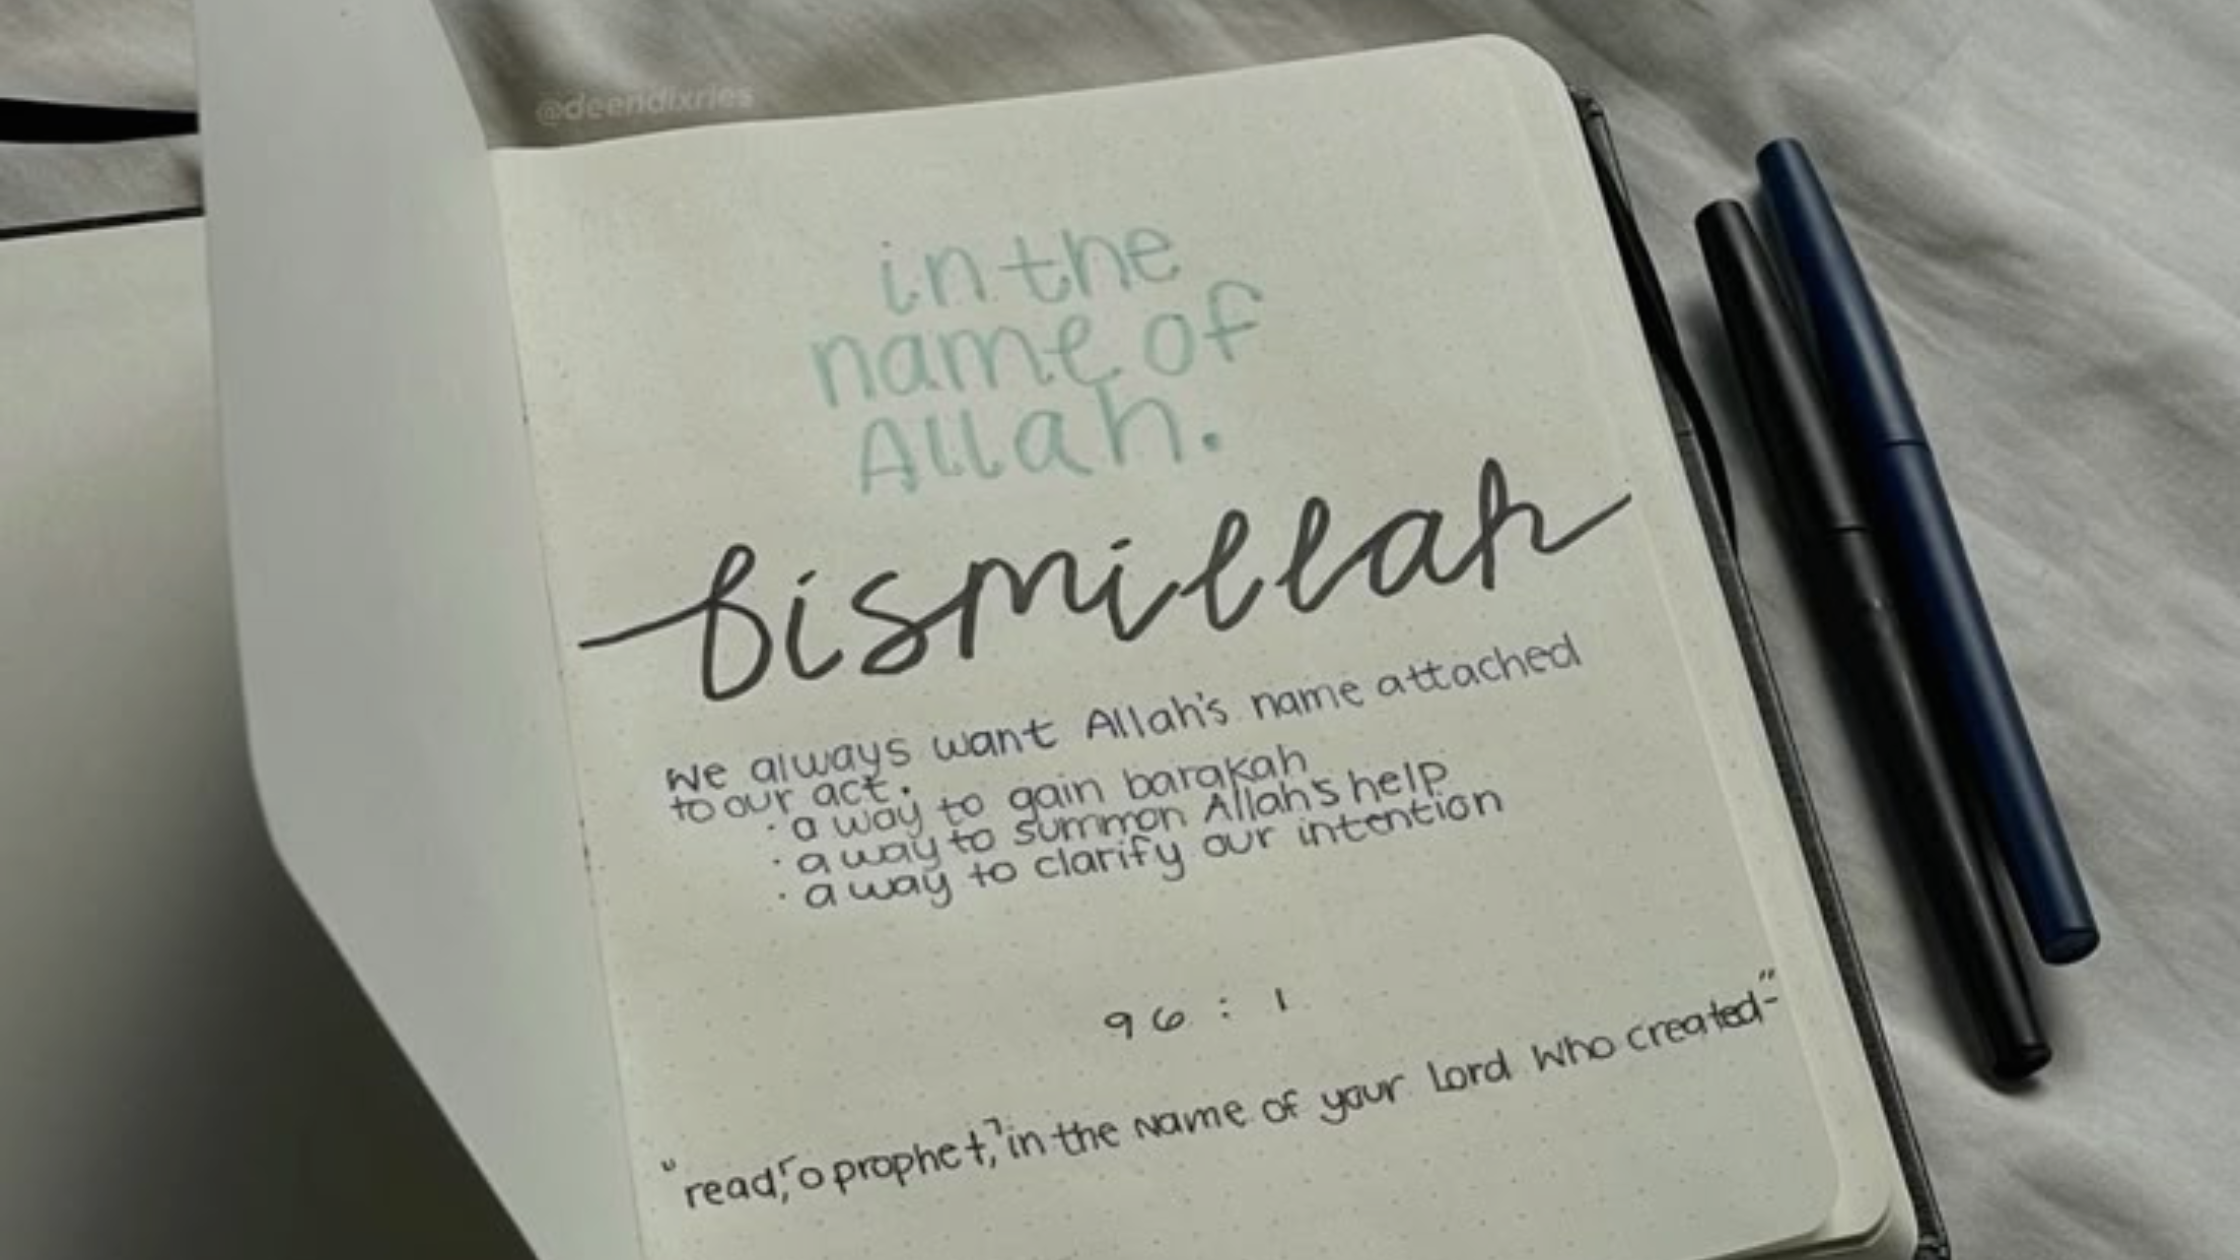 @deendixries
in the
name of
Allah.
bismillah
We always want Allah's name attached
to our act.
· a way to gain barakah
· a way to summon Allah's help
· a way to clarify our intention
96 : 1
"read, ⸢o prophet,⸣ in the Name of your Lord Who created-"